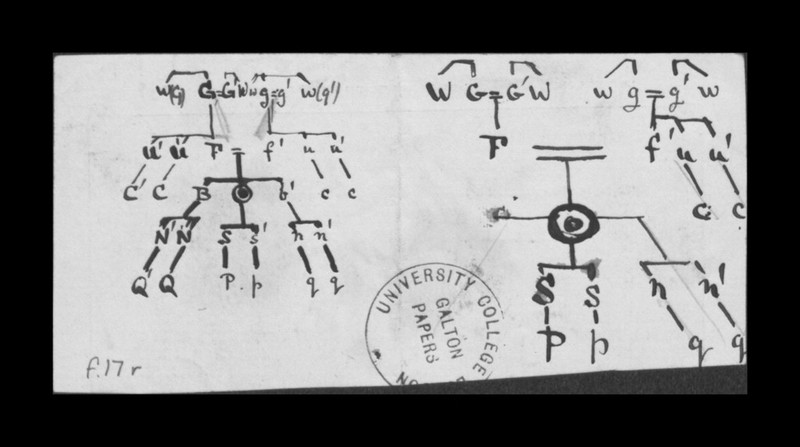 w(G) G=G'W w g=g' w(g')
u' u F = f' u u'
C' C B b' c c
N' N S s' n n'
Q' Q P p q q
W G=G'W w g=g' w
F f' u u'
c c
S s n n'
P p q q
UNIVERSITY COLLEGE
GALTON
PAPERS
f.17 r